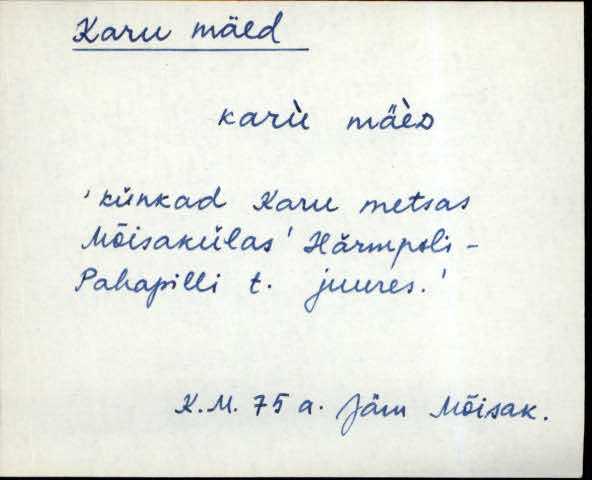 Karu mäed
karù mäèᴅ
'künkad Karu metsas
Mõisakülas' Härmpoli-
Pahapilli t. juures.'
K.M. 75 a. Jäm Mõisak.